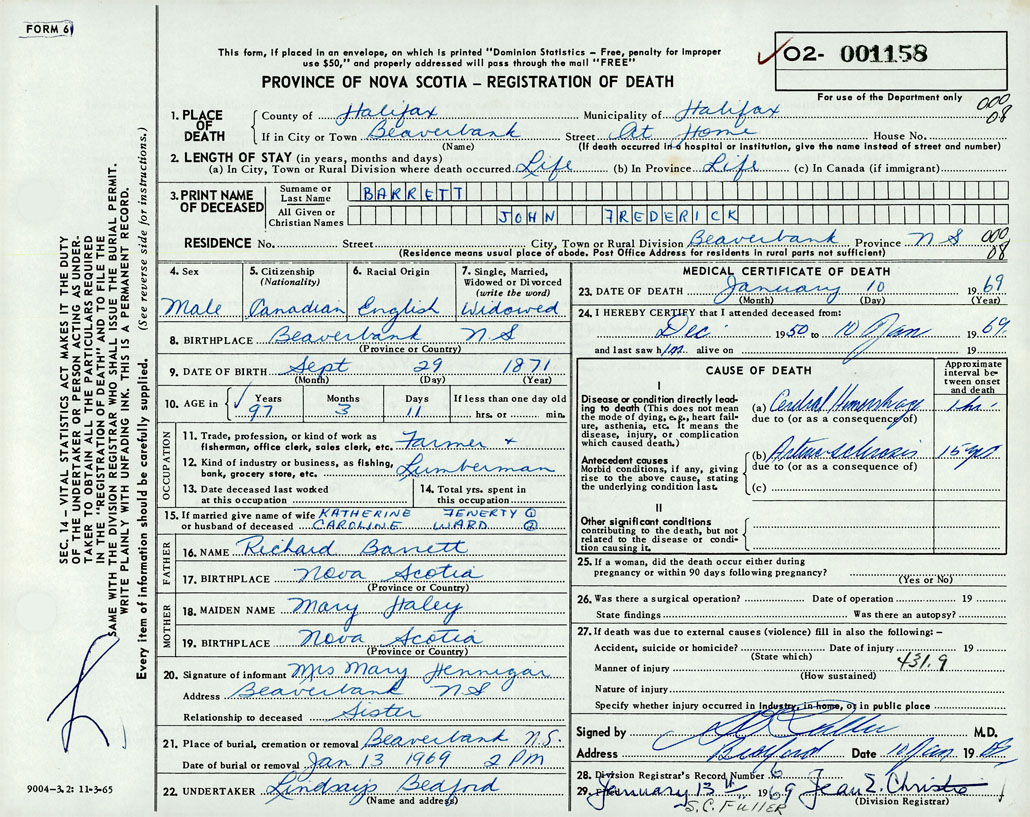 FORM 6
This form, if placed in an envelope, on which is printed "Dominion Statistics – Free, penalty for improper
use $50," and properly addressed will pass through the mail "FREE"
PROVINCE OF NOVA SCOTIA – REGISTRATION OF DEATH
02- 001158
For use of the Department only
000
08
1. PLACE OF DEATH
County of Halifax Municipality of Halifax
If in City or Town Beaverbank Street At Home House No.
(Name) (If death occurred in a hospital or institution, give the name instead of street and number)
2. LENGTH OF STAY (in years, months and days)
(a) In City, Town or Rural Division where death occurred Life (b) In Province Life (c) In Canada (if immigrant)
3. PRINT NAME OF DECEASED
Surname or Last Name BARRETT
All Given or Christian Names JOHN FREDERICK
RESIDENCE No. Street City, Town or Rural Division Beaverbank Province N S
000
08
(Residence means usual place of abode. Post Office Address for residents in rural parts not sufficient)
4. Sex Male
5. Citizenship (Nationality) Canadian
6. Racial Origin English
7. Single, Married, Widowed or Divorced (write the word) Widowed
8. BIRTHPLACE Beaverbank N S
(Province or Country)
9. DATE OF BIRTH Sept 29 1871
(Month) (Day) (Year)
10. AGE in Years Months Days If less than one day old
97 3 11 hrs. or min.
OCCUPATION
11. Trade, profession, or kind of work as fisherman, office clerk, sales clerk, etc. Farmer +
12. Kind of industry or business, as fishing, bank, grocery store, etc. Lumberman
13. Date deceased last worked at this occupation
14. Total yrs. spent in this occupation
15. If married give name of wife or husband of deceased
KATHERINE FENERTY ①
CAROLINE WARD ②
FATHER
16. NAME Richard Barrett
17. BIRTHPLACE Nova Scotia
(Province or Country)
MOTHER
18. MAIDEN NAME Mary Haley
19. BIRTHPLACE Nova Scotia
(Province or Country)
20. Signature of informant Mrs Mary Hennigar
Address Beaverbank N S
Relationship to deceased Sister
21. Place of burial, cremation or removal Beaverbank N.S.
Date of burial or removal Jan 13 1969 2 PM
22. UNDERTAKER Lindsays Bedford
(Name and address)
MEDICAL CERTIFICATE OF DEATH
23. DATE OF DEATH January 10 1969
(Month) (Day) (Year)
24. I HEREBY CERTIFY that I attended deceased from:
Dec 1950 to 10 Jan 1969.
and last saw him alive on 19
CAUSE OF DEATH
Approximate interval between onset and death
I
Disease or condition directly leading to death (This does not mean the mode of dying, e.g., heart failure, asthenia, etc. It means the disease, injury, or complication which caused death.)
(a) Cerebral Hemorrhage
due to (or as a consequence of)
Antecedent causes
Morbid conditions, if any, giving rise to the above cause, stating the underlying condition last.
(b) Arterio-sclerosis 15 yrs
due to (or as a consequence of)
(c)
II
Other significant conditions contributing to the death, but not related to the disease or condition causing it.
25. If a woman, did the death occur either during pregnancy or within 90 days following pregnancy?
(Yes or No)
26. Was there a surgical operation? Date of operation 19
State findings Was there an autopsy?
27. If death was due to external causes (violence) fill in also the following: –
Accident, suicide or homicide? Date of injury 19
(State which)
431.9
Manner of injury
(How sustained)
Nature of injury
Specify whether injury occurred in Industry, in home, or in public place
Signed by M.D.
Address Bedford Date 10 Jan 19
28. Division Registrar's Record Number 6
29. January 13th 1969 Jean E. Christie
S.C. FULLER (Division Registrar)
SEC. 14 – VITAL STATISTICS ACT MAKES IT THE DUTY
OF THE UNDERTAKER OR PERSON ACTING AS UNDER-
TAKER TO OBTAIN ALL THE PARTICULARS REQUIRED
IN THE "REGISTRATION OF DEATH" AND TO FILE THE
SAME WITH THE DIVISION REGISTRAR WHO SHALL ISSUE THE BURIAL PERMIT.
WRITE PLAINLY WITH UNFADING INK. THIS IS A PERMANENT RECORD.
Every item of information should be carefully supplied. (See reverse side for instructions.)
9004-3.2: 11-3-65